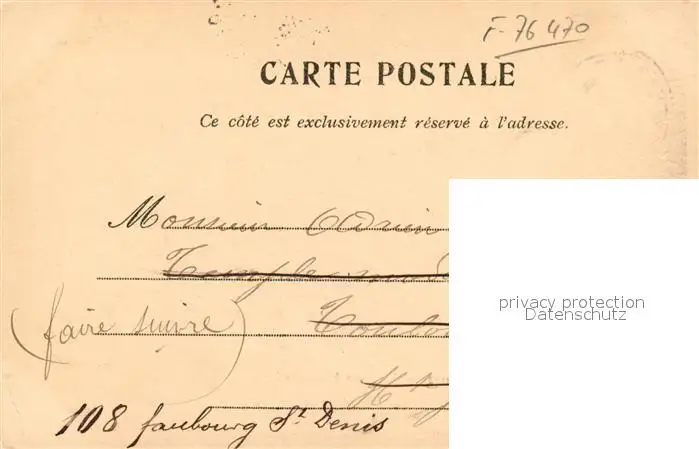 F-76470
CARTE POSTALE
Ce côté est exclusivement réservé à l'adresse.
Monsieur
(faire suivre)
108 faubourg St Denis
privacy protection
Datenschutz